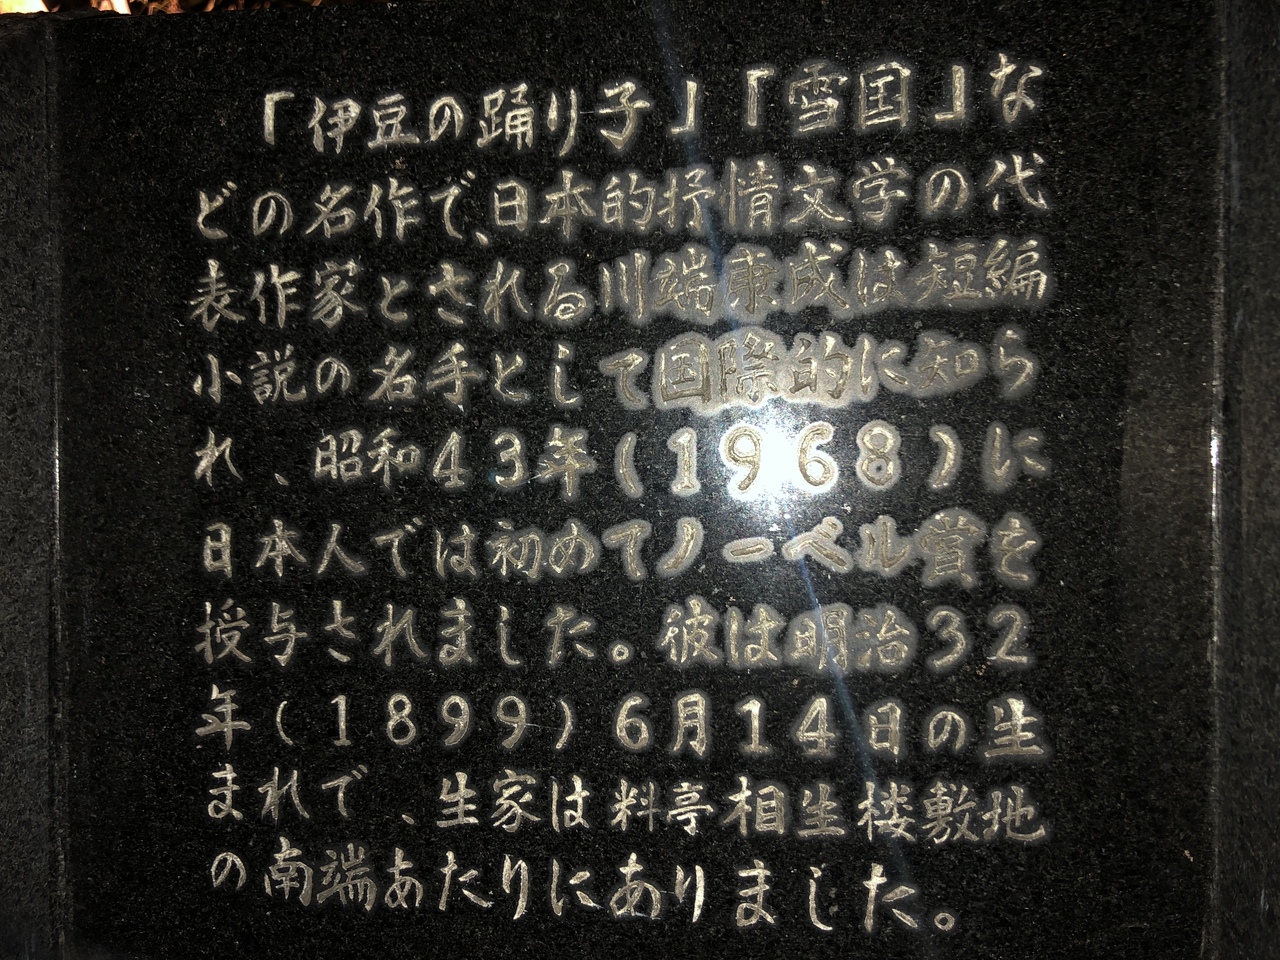 「伊豆の踊り子」「雪国」な
どの名作で、日本的抒情文学の代
表作家とされる川端康成は短編
小説の名手として国際的に知ら
れ、昭和43年(1968)に
日本人では初めてノーベル賞を
授与されました。彼は明治32
年(1899)6月14日の生
まれで、生家は料亭相生楼敷地
の南端あたりにありました。